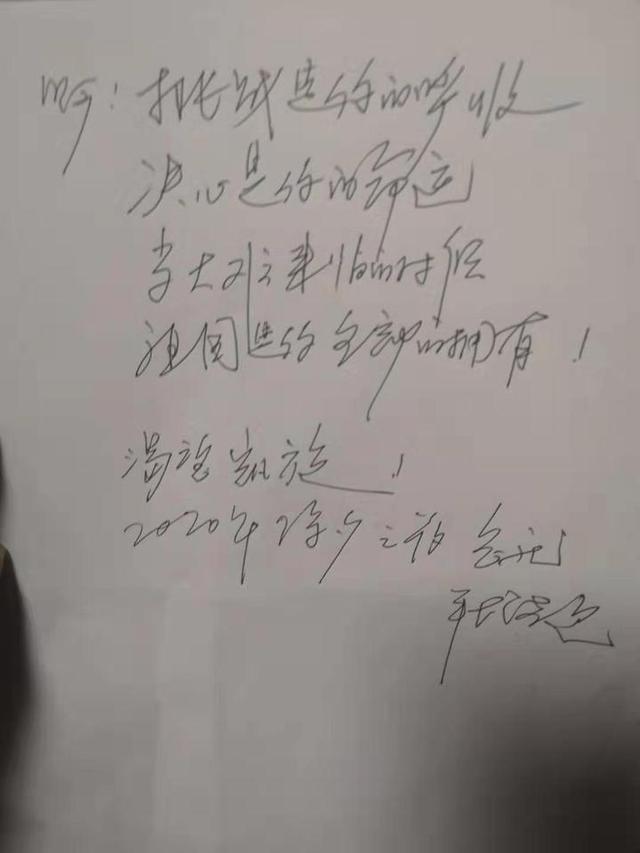 挑战是你的呼吸
决心是你的命运
当大难来临的时候
祖国是你全部的拥有！
渴望凯旋！
2020年除夕之夜